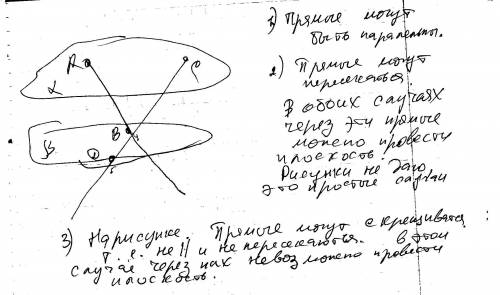 1) Прямые могут
быть паралельны.
2) Прямые могут
пересекаться.
В обоих случаях
через эти прямые
можно провести
плоскость.
Рисунки не даю
это простые случаи
A
C
α
B
β
D
3) На рисунке. Прямые могут скрещиватся
т.е. не || и не пересекаются. В этом
случае через них невозможно провести
плоскость.